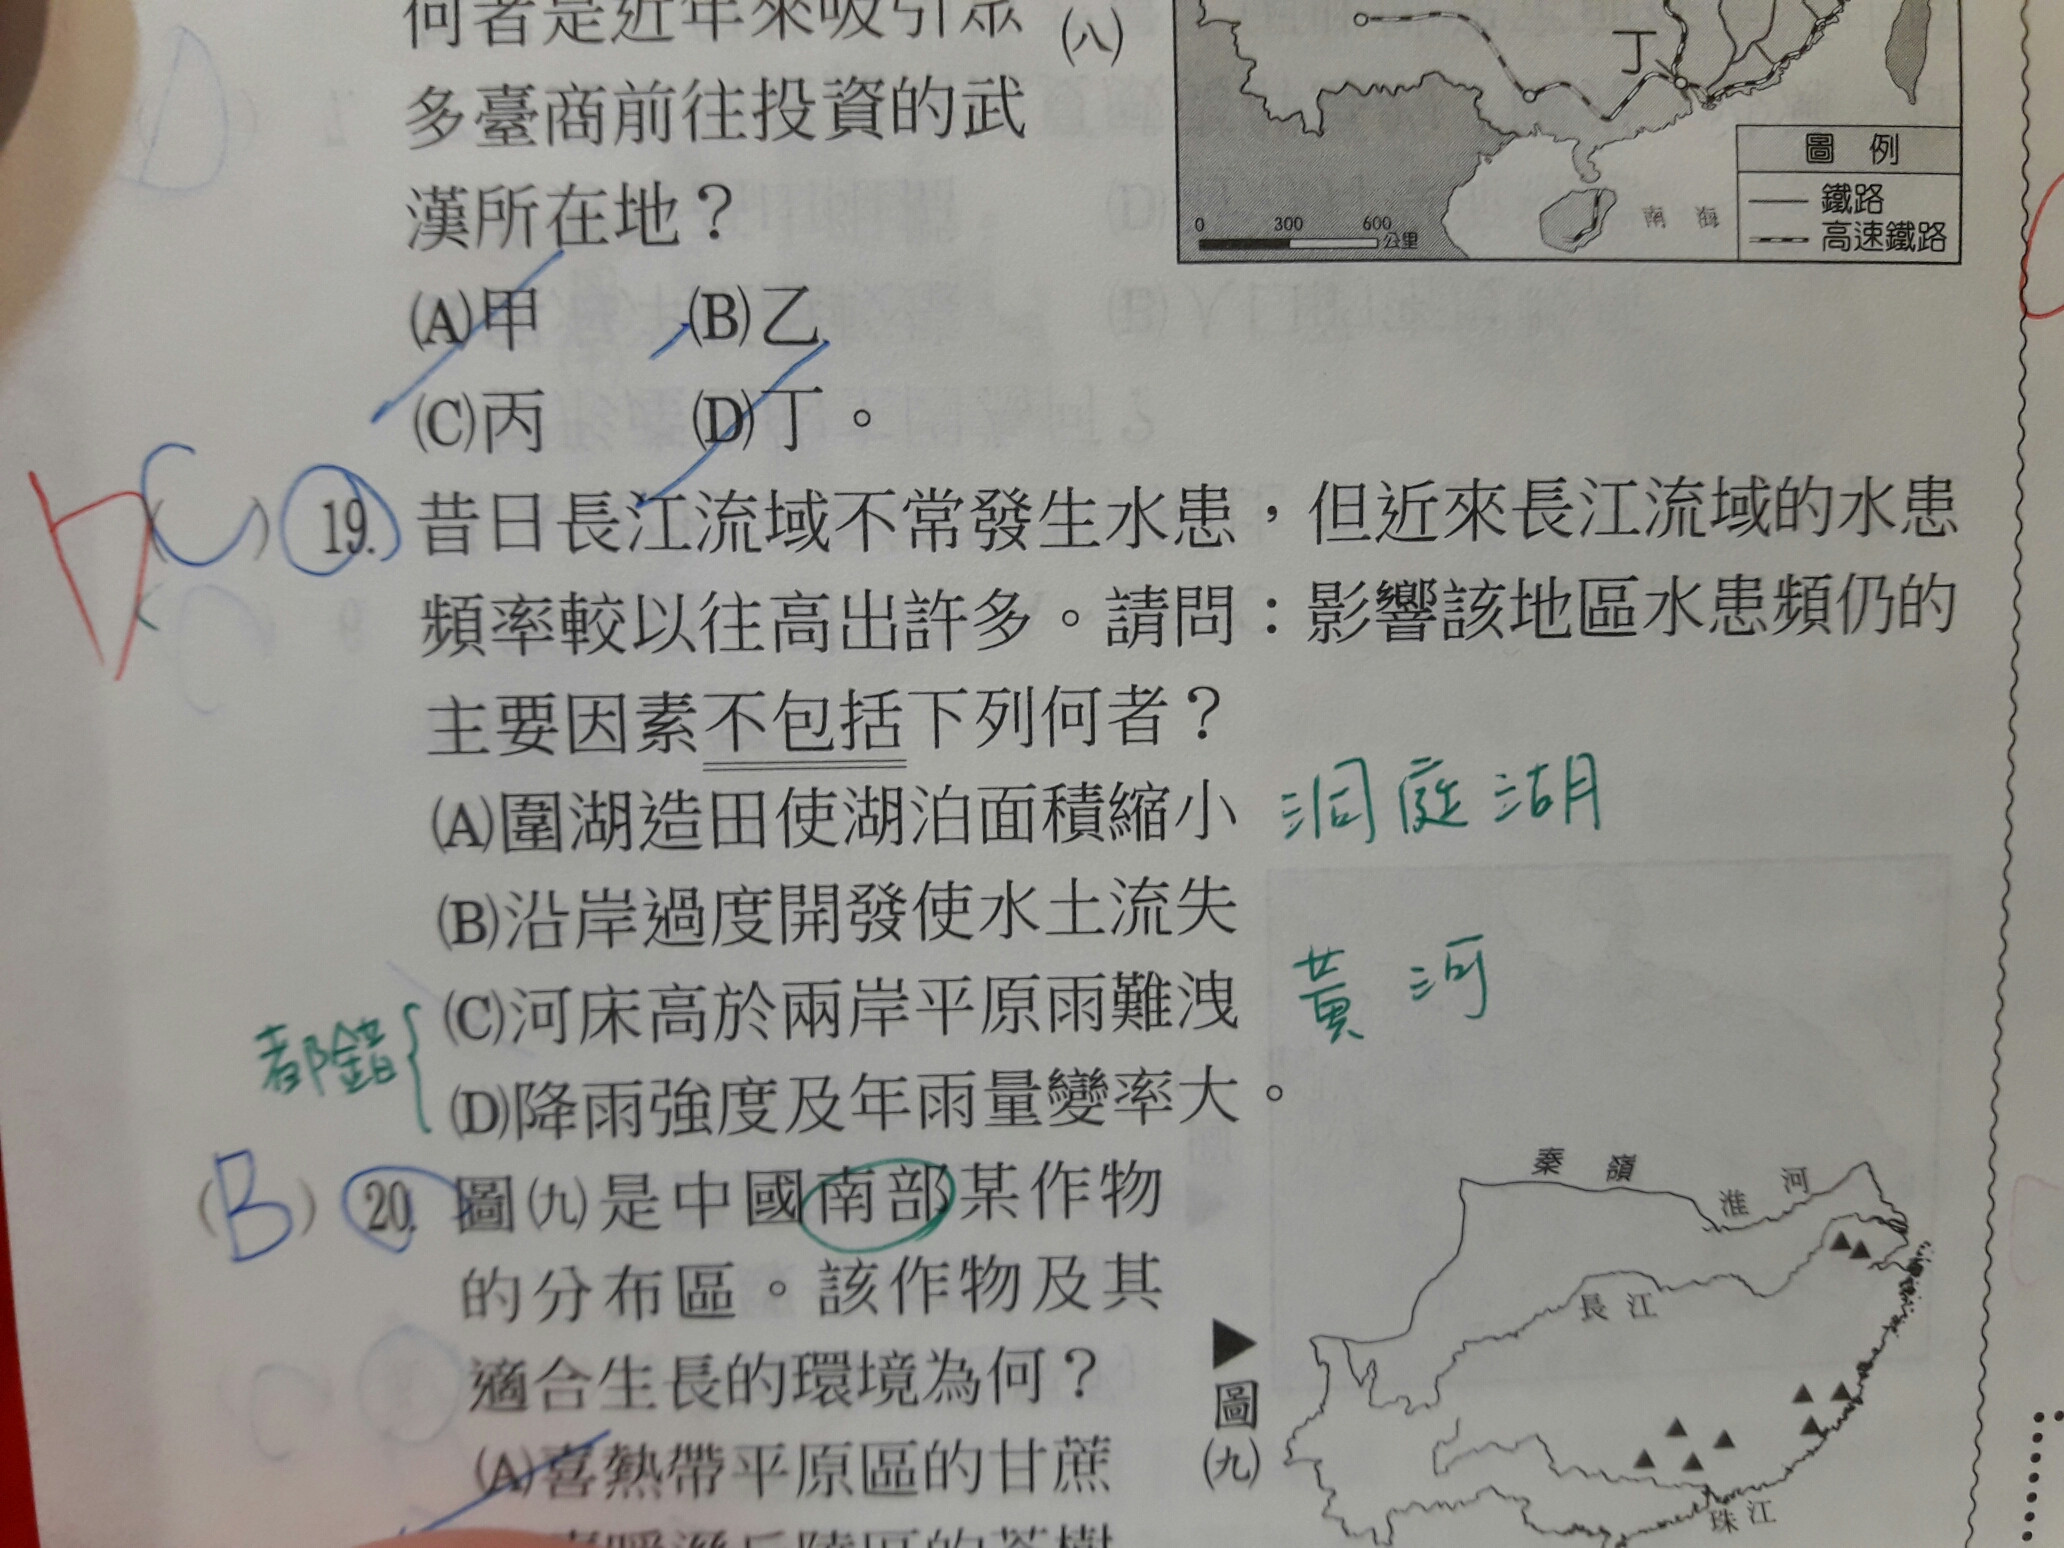 何者是近年來吸引眾
多臺商前往投資的武
漢所在地？
(A)甲 (B)乙
(C)丙 (D)丁。
(八)
丁
圖例
鐵路
高速鐵路
南海
0 300 600 公里
(C) 19. 昔日長江流域不常發生水患，但近來長江流域的水患
頻率較以往高出許多。請問：影響該地區水患頻仍的
主要因素不包括下列何者？
(A)圍湖造田使湖泊面積縮小 洞庭湖
(B)沿岸過度開發使水土流失
(C)河床高於兩岸平原雨難洩 黃河
都錯
(D)降雨強度及年雨量變率大。
(B) 20. 圖(九)是中國南部某作物
的分布區。該作物及其
適合生長的環境為何？
(A)喜熱帶平原區的甘蔗
秦嶺
淮河
長江
珠江
▶圖(九)